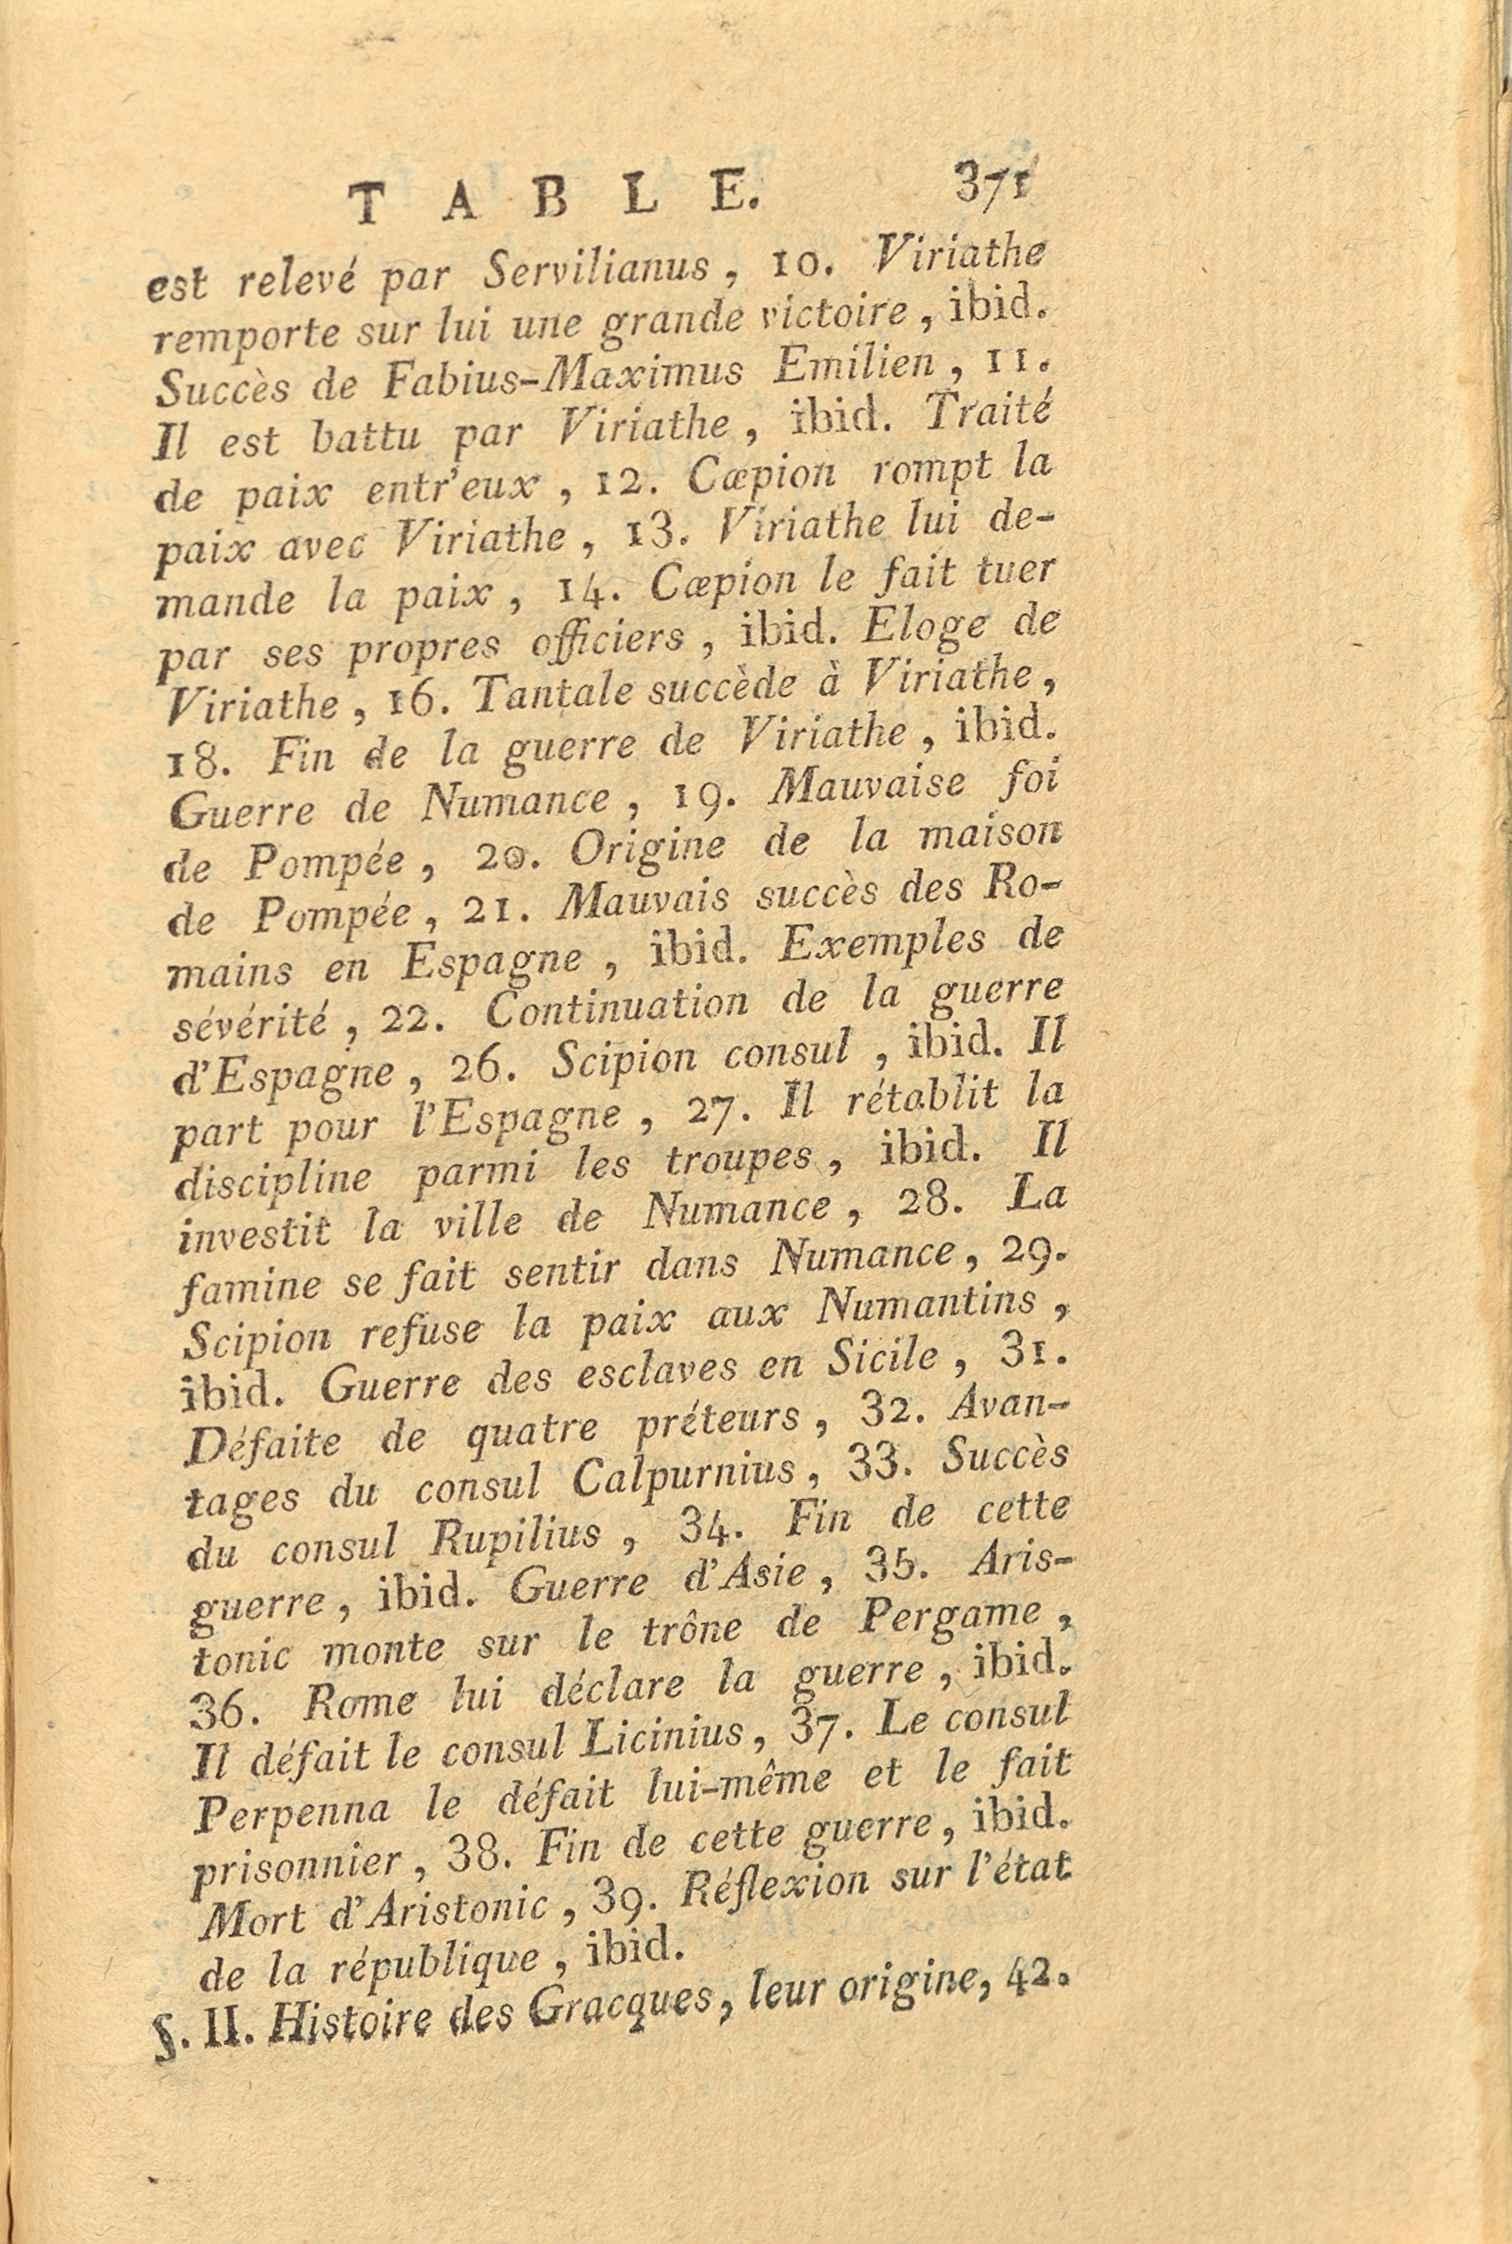 TABLE. 371
est relevé par Servilianus, 10. Viriathe
remporte sur lui une grande victoire, ibid.
Succès de Fabius-Maximus Emilien, 11.
Il est battu par Viriathe, ibid. Traité
de paix entr'eux, 12. Cæpion rompt la
paix avec Viriathe, 13. Viriathe lui de-
mande la paix, 14. Cæpion le fait tuer
par ses propres officiers, ibid. Eloge de
Viriathe, 16. Tantale succède à Viriathe,
18. Fin de la guerre de Viriathe, ibid.
Guerre de Numance, 19. Mauvaise foi
de Pompée, 20. Origine de la maison
de Pompée, 21. Mauvais succès des Ro-
mains en Espagne, ibid. Exemples de
sévérité, 22. Continuation de la guerre
d'Espagne, 26. Scipion consul, ibid. Il
part pour l'Espagne, 27. Il rétablit la
discipline parmi les troupes, ibid. Il
investit la ville de Numance, 28. La
famine se fait sentir dans Numance, 29.
Scipion refuse la paix aux Numantins,
ibid. Guerre des esclaves en Sicile, 31.
Défaite de quatre préteurs, 32. Avan-
tages du consul Calpurnius, 33. Succès
du consul Rupilius, 34. Fin de cette
guerre, ibid. Guerre d'Asie, 35. Aris-
tonic monte sur le trône de Pergame,
36. Rome lui déclare la guerre, ibid.
Il défait le consul Licinius, 37. Le consul
Perpenna le défait lui-même et le fait
prisonnier, 38. Fin de cette guerre, ibid.
Mort d'Aristonic, 39. Réflexion sur l'état
de la république, ibid.
§. II. Histoire des Gracques, leur origine, 42.